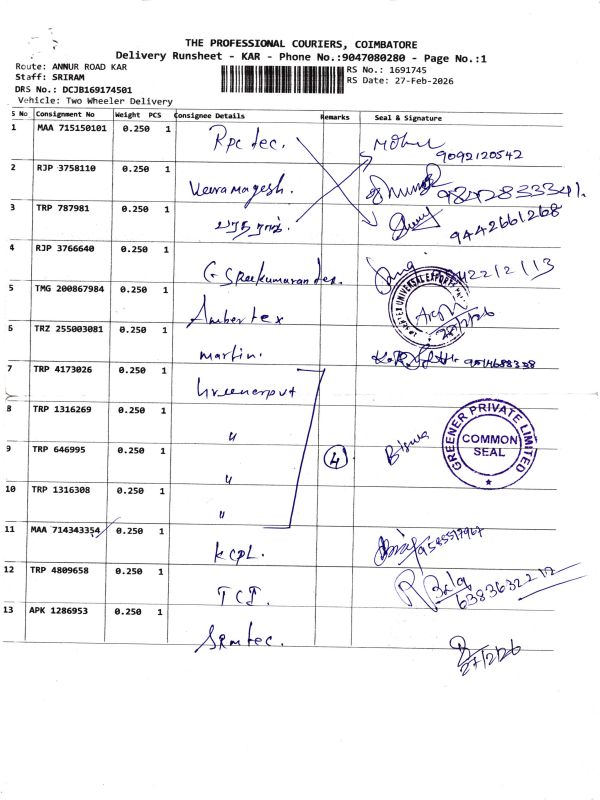 THE PROFESSIONAL COURIERS, COIMBATORE
Delivery Runsheet - KAR - Phone No.:9047080280 - Page No.:1
Route: ANNUR ROAD KAR
RS No.: 1691745
Staff: SRIRAM
RS Date: 27-Feb-2026
DRS No.: DCJB169174501
Vehicle: Two Wheeler Delivery
S No Consignment No Weight PCS Consignee Details Remarks Seal & Signature
1 MAA 715150101 0.250 1 Rpc tec.
9092120542
2 RJP 3758110 0.250 1 Veeramagesh.
9842833341.
3 TRP 787981 0.250 1 வரதராஜ்.
9442661268
4 RJP 3766640 0.250 1 G Sreekumaran tex.
5 TMG 200867984 0.250 1 Amber tex
27/2/26
6 TRZ 255003081 0.250 1 martin.
7 TRP 4173026 0.250 1 Greenerput
8 TRP 1316269 0.250 1 "
9 TRP 646995 0.250 1 " 4 Biswa
GREENER PRIVATE LIMITED
COMMON SEAL
10 TRP 1316308 0.250 1 "
11 MAA 714343354 0.250 1 KCPL.
9585517967
12 TRP 4809658 0.250 1 TCI.
Bala
6383632212
13 APK 1286953 0.250 1 SRmtec.
27/2/26